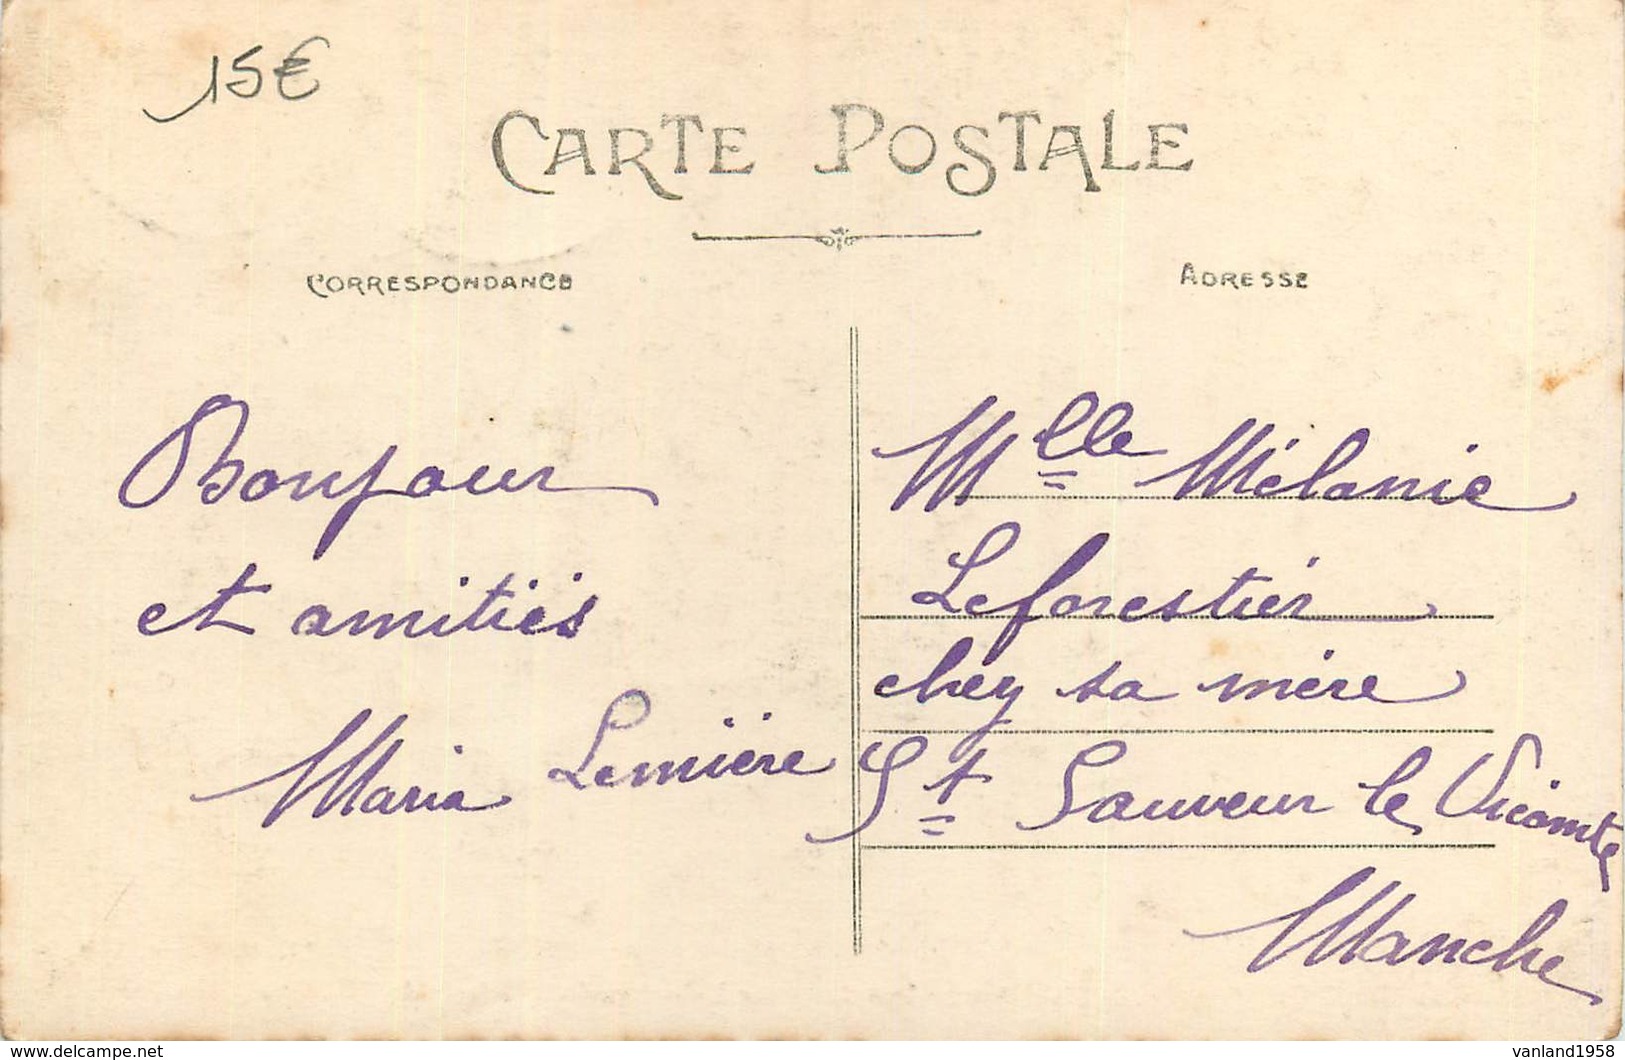 15€
CARTE POSTALE
CORRESPONDANCE
ADRESSE
Bonjour
et amitiés
Maria Lemière
Mlle Mélanie
Leforestier
chez sa mère
St Sauveur le Vicomte
Manche
www.delcampe.net
vanland1958